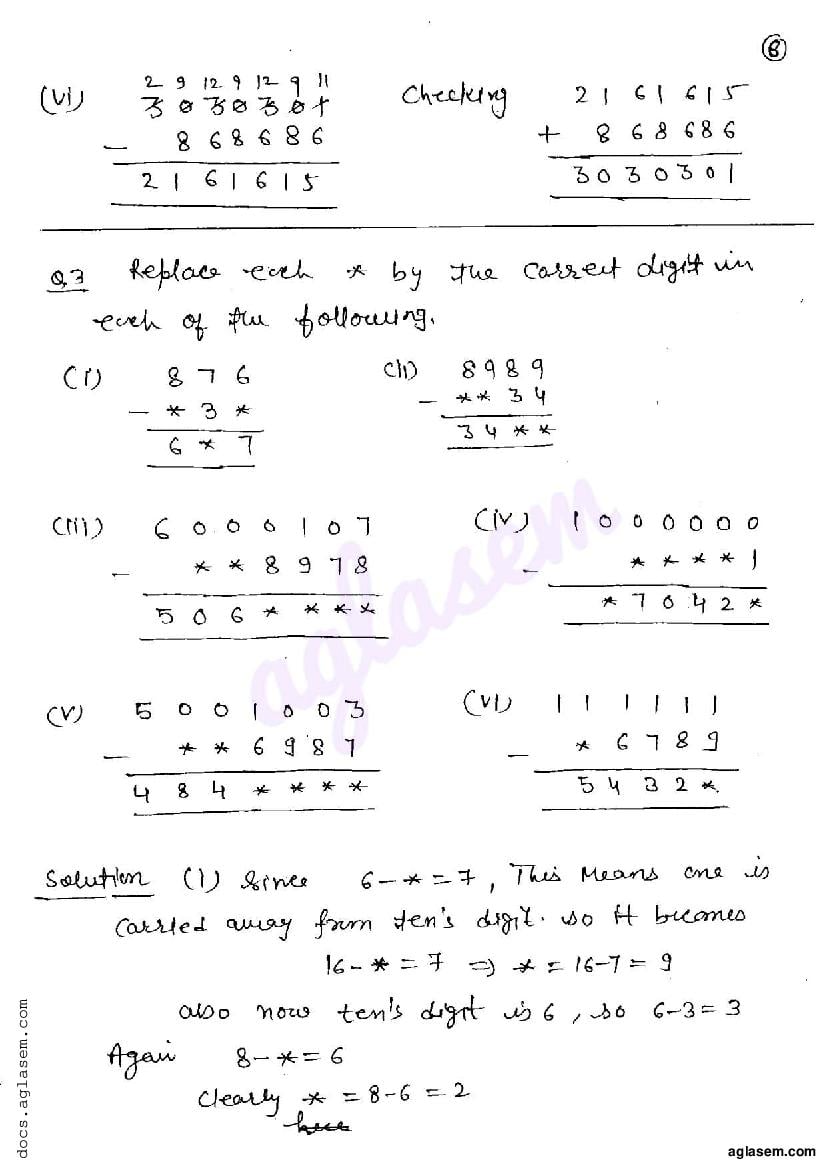 6
2 9 12 9 12 9 11
(vi) 3 0 3 0 3 0 1 Checking 2 1 6 1 6 1 5
- 8 6 8 6 8 6 + 8 6 8 6 8 6
2 1 6 1 6 1 5 3 0 3 0 3 0 1
Q.3 Replace each * by the correct digit in
each of the following.
(i) 8 7 6 (ii) 8 9 8 9
- * 3 * - * * 3 4
6 * 7 3 4 * *
(iii) 6 0 0 0 1 0 7 (iv) 1 0 0 0 0 0 0
- * * 8 9 7 8 - * * * * 1
5 0 6 * * * * * 7 0 4 2 *
(v) 5 0 0 1 0 0 3 (vi) 1 1 1 1 1 1
- * * 6 9 8 7 - * 6 7 8 9
4 8 4 * * * * 5 4 3 2 *
Solution (i) Since 6 - * = 7, This means one is
carried away from ten's digit. so it becomes
16 - * = 7 ⇒ * = 16 - 7 = 9
also now ten's digit is 6, so 6 - 3 = 3
Again 8 - * = 6
Clearly * = 8 - 6 = 2
aglasem
docs.aglasem.com
aglasem.com